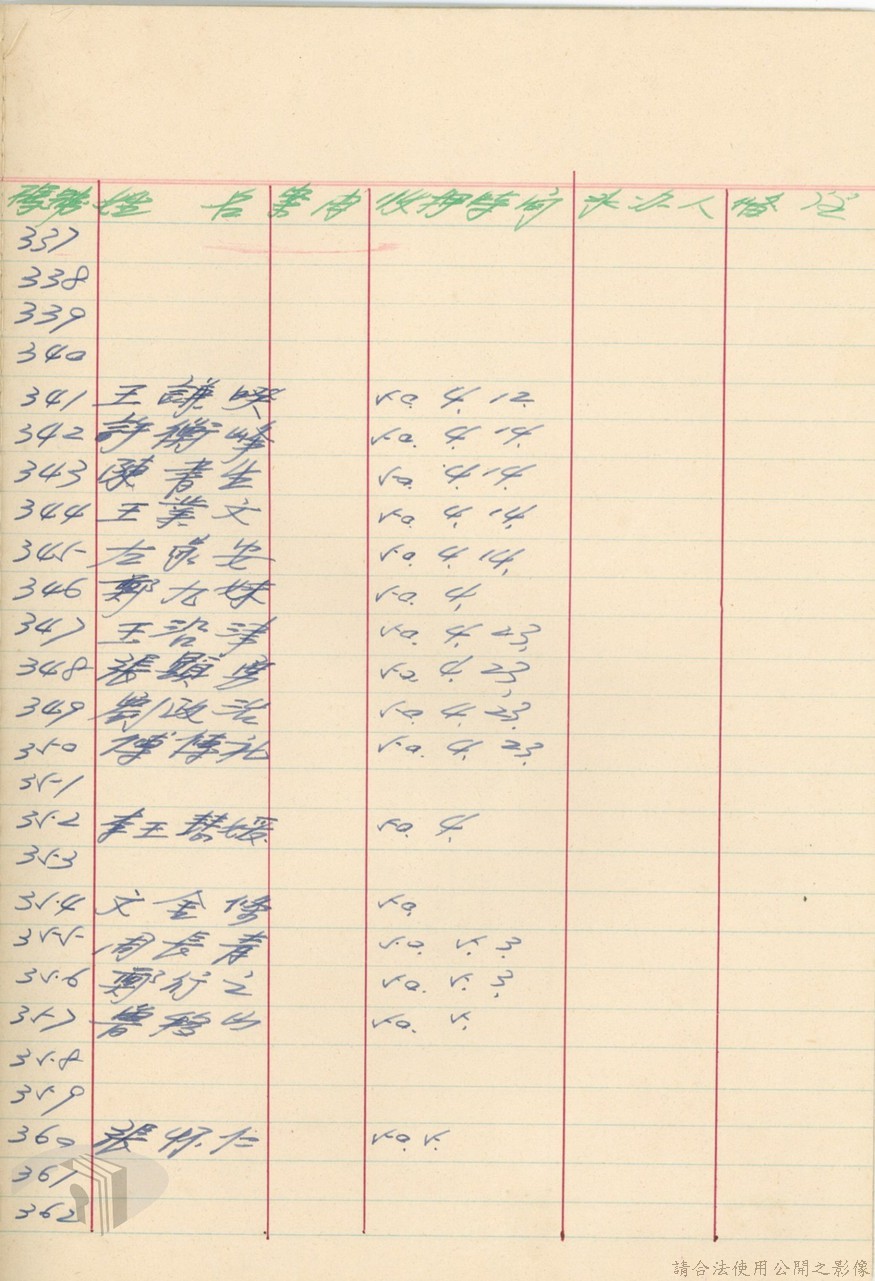 號碼 姓 名 案由 收押時間 承办人 備註
337
338
339
340
341 王謙 50. 4. 12.
342 許衡峰 50. 4. 14.
343 陳青生 50. 4. 14.
344 王業文 50. 4. 14.
345 左家安 50. 4. 14.
346 鄭九妹 50. 4.
347 王治津 50. 4. 23.
348 張顯 50. 4. 23.
349 劉政 50. 4. 23.
350 傅傳礼 50. 4. 23.
351
352 李王慧媛 50. 4.
353
354 文金 50.
355 周長青 50. 5. 3.
356 鄭行之 50. 5. 3.
357 曾 山 50. 5.
358
359
360 張怀仁 50. 5.
361
362
請合法使用公開之影像